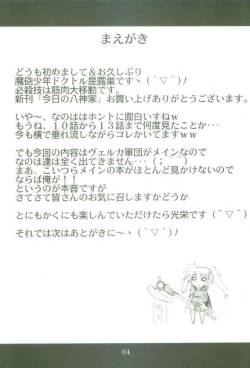 まえがき
どうも初めまして＆お久しぶり
魔砲少年ドクトル是露巣ですヽ（´▽｀）ﾉ
必殺技は筋肉大移動です。
新刊「今日の八神家」お買い上げありがとうございます。
いや～、なのははホントに面白いすねｗ
もうね、１０話から１３話まで何度見たことか・・・
今も横で垂れ流しながらコレ書いてますｗ
でも今回の内容はヴェルカ軍団がメインななので
なのは達は全く出てきません…（；´Д｀）
まあ、こいつらメインの本がほとんど見かけないので
ならば俺が！！
というのが本音ですが
さてさて皆さんのお気に召しますかどうか
とにもかくにも楽しんでいただけたら光栄ですヽ（´▽｀）ﾉ
それでは次はあとがきに～ヽ（´▽｀）ﾉ
04